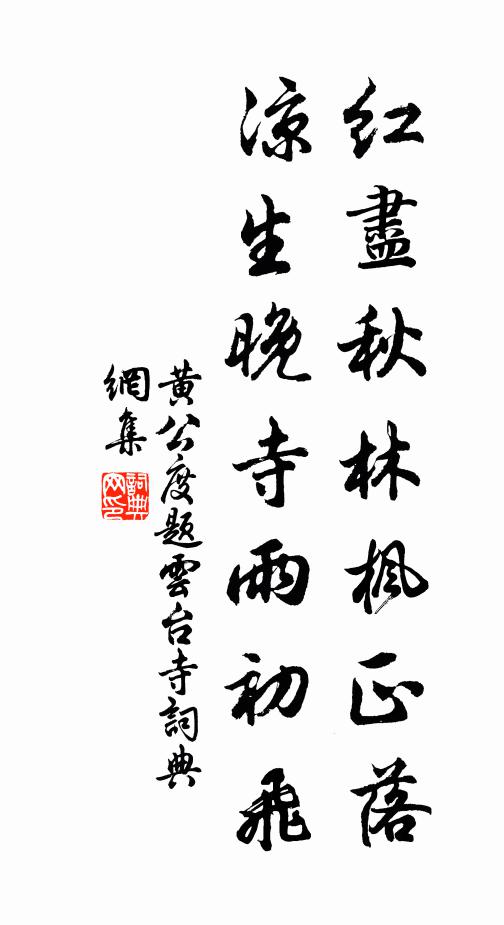 紅盡秋林楓正落
涼生晚寺雨初飛
黃公度題雲台寺詞典
網集
詞典
网印